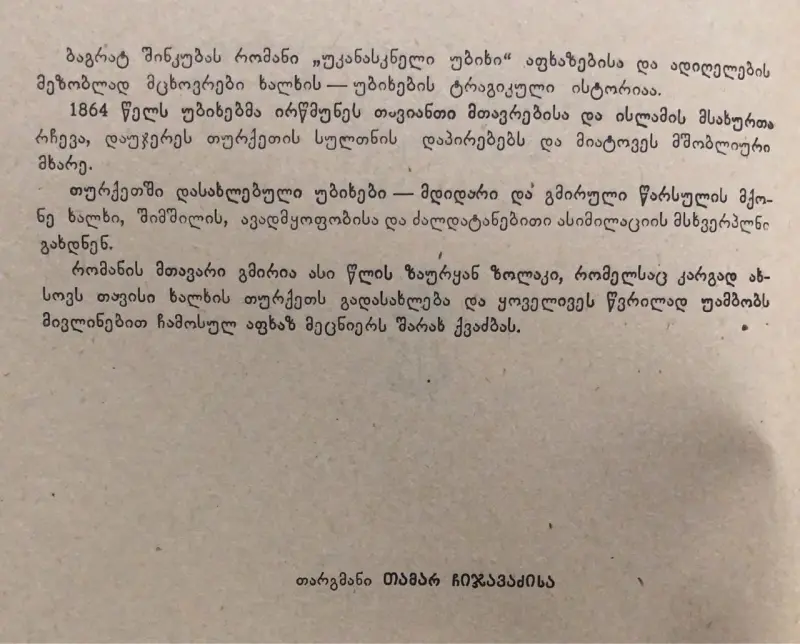 ბაგრატ შინკუბას რომანი „უკანასკნელი უბიხი“ აფხაზებისა და ადიღელების
მეზობლად მცხოვრები ხალხის — უბიხების ტრაგიკული ისტორიაა.
1864 წელს უბიხებმა ირწმუნეს თავიანთი მთავრებისა და ისლამის მსახურთა
რჩევა, დაუჯერეს თურქეთის სულთნის დაპირებებს და მიატოვეს მშობლიური
მხარე.
თურქეთში დასახლებული უბიხები — მდიდარი და გმირული წარსულის მქო-
ნე ხალხი, შიმშილის, ავადმყოფობისა და ძალდატანებითი ასიმილაციის მსხვერპლნი
გახდნენ.
რომანის მთავარი გმირია ასი წლის ზაურყან ზოლაკი, რომელსაც კარგად ახ-
სოვს თავისი ხალხის თურქეთს გადასახლება და ყოველივეს წვრილად უამბობს
მივლინებით ჩამოსულ აფხაზ მეცნიერს შარახ ქვაძბას.
თარგმანი თამარ ჩიჯავაძისა